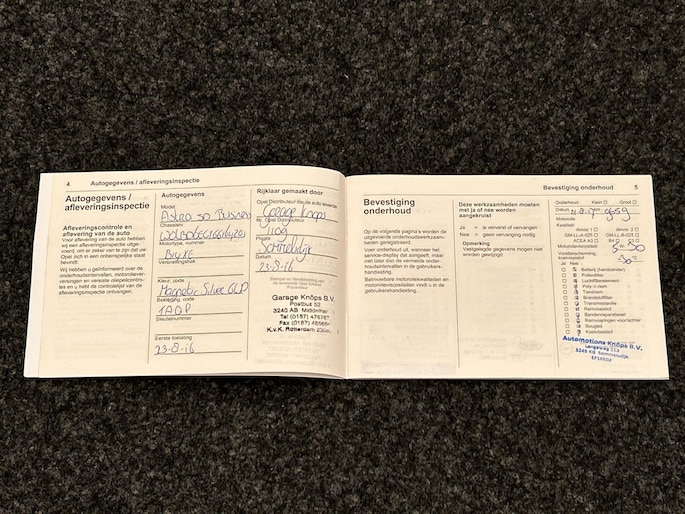 4 Autogegevens / afleveringsinspectie
Autogegevens /
afleveringsinspectie
Afleveringscontrole en
aflevering van de auto
Voor aflevering van de auto hebben
wij een afleveringsinspectie uitge-
voerd, om er zeker van te zijn dat uw
Opel zich in een onberispelijke staat
bevindt.
Wij hebben u geïnformeerd over de
onderhoudsintervallen, motoroliever-
versingen en vereiste oliepeilcontro-
les en u hebt de controlelijst van de
afleveringsinspectie ontvangen.
Autogegevens
Model
Astra sp Business
Chassisnr.
Motortype, nummer
Versnellingsbak
Kleur, code
Magnetic Silver
Bekleding, code
Sleutelnummer
Eerste toelating
23-8-16
Rijklaar gemaakt door
Opel Distributeur die de auto
Garage Knöps
Nr. Opel Distributeur
Plaats
Sommelsdijk
Datum
23-8-16
Stempel en handtekening van
Garage Knöps B.V.
Postbus 52
3240 AB Middelhar
Tel (0187)
Fax (0187)
K.v.K. Rotterdam
Bevestiging onderhoud 5
Bevestiging
onderhoud
Op de volgende pagina's worden de
uitgevoerde onderhoudswerkzaam-
heden geregistreerd.
Voer onderhoud uit, wanneer het
service-display dat aangeeft, maar
niet later dan de vermelde onder-
houdsintervallen in de gebruikers-
handleiding.
Betrouwbare motoroliekwaliteiten en
motorolieviscositeiten vindt u in de
gebruikershandleiding.
Deze werkzaamheden moeten
met ja of nee worden
aangekruist
Ja = is ververst of vervangen
Nee = geen vervanging nodig
Opmerking
Vastgelegde gegevens mogen niet
worden gewijzigd.
Onderhoud: Klein Groot
Datum
Motorolie
Kwaliteit:
dexos 1 dexos 2
GM-LL-A-025 GM-LL-B-025
ACEA A3 B4 C3
Motorolieviscositeit: 5 30
Vorstbescherming,
koelvloeistof
Ja Nee
Batterij (handzender)
Pollenfilter
Luchtfilterelement
Poly-V-riem
Tandriem
Brandstoffilter
Transmissieolie
Remvloeistof
Bandenreparatieset
Bougies
Koelvloeistof
Automotions Knöps B.V.
Langeweg 113
3245 KG Sommelsdijk